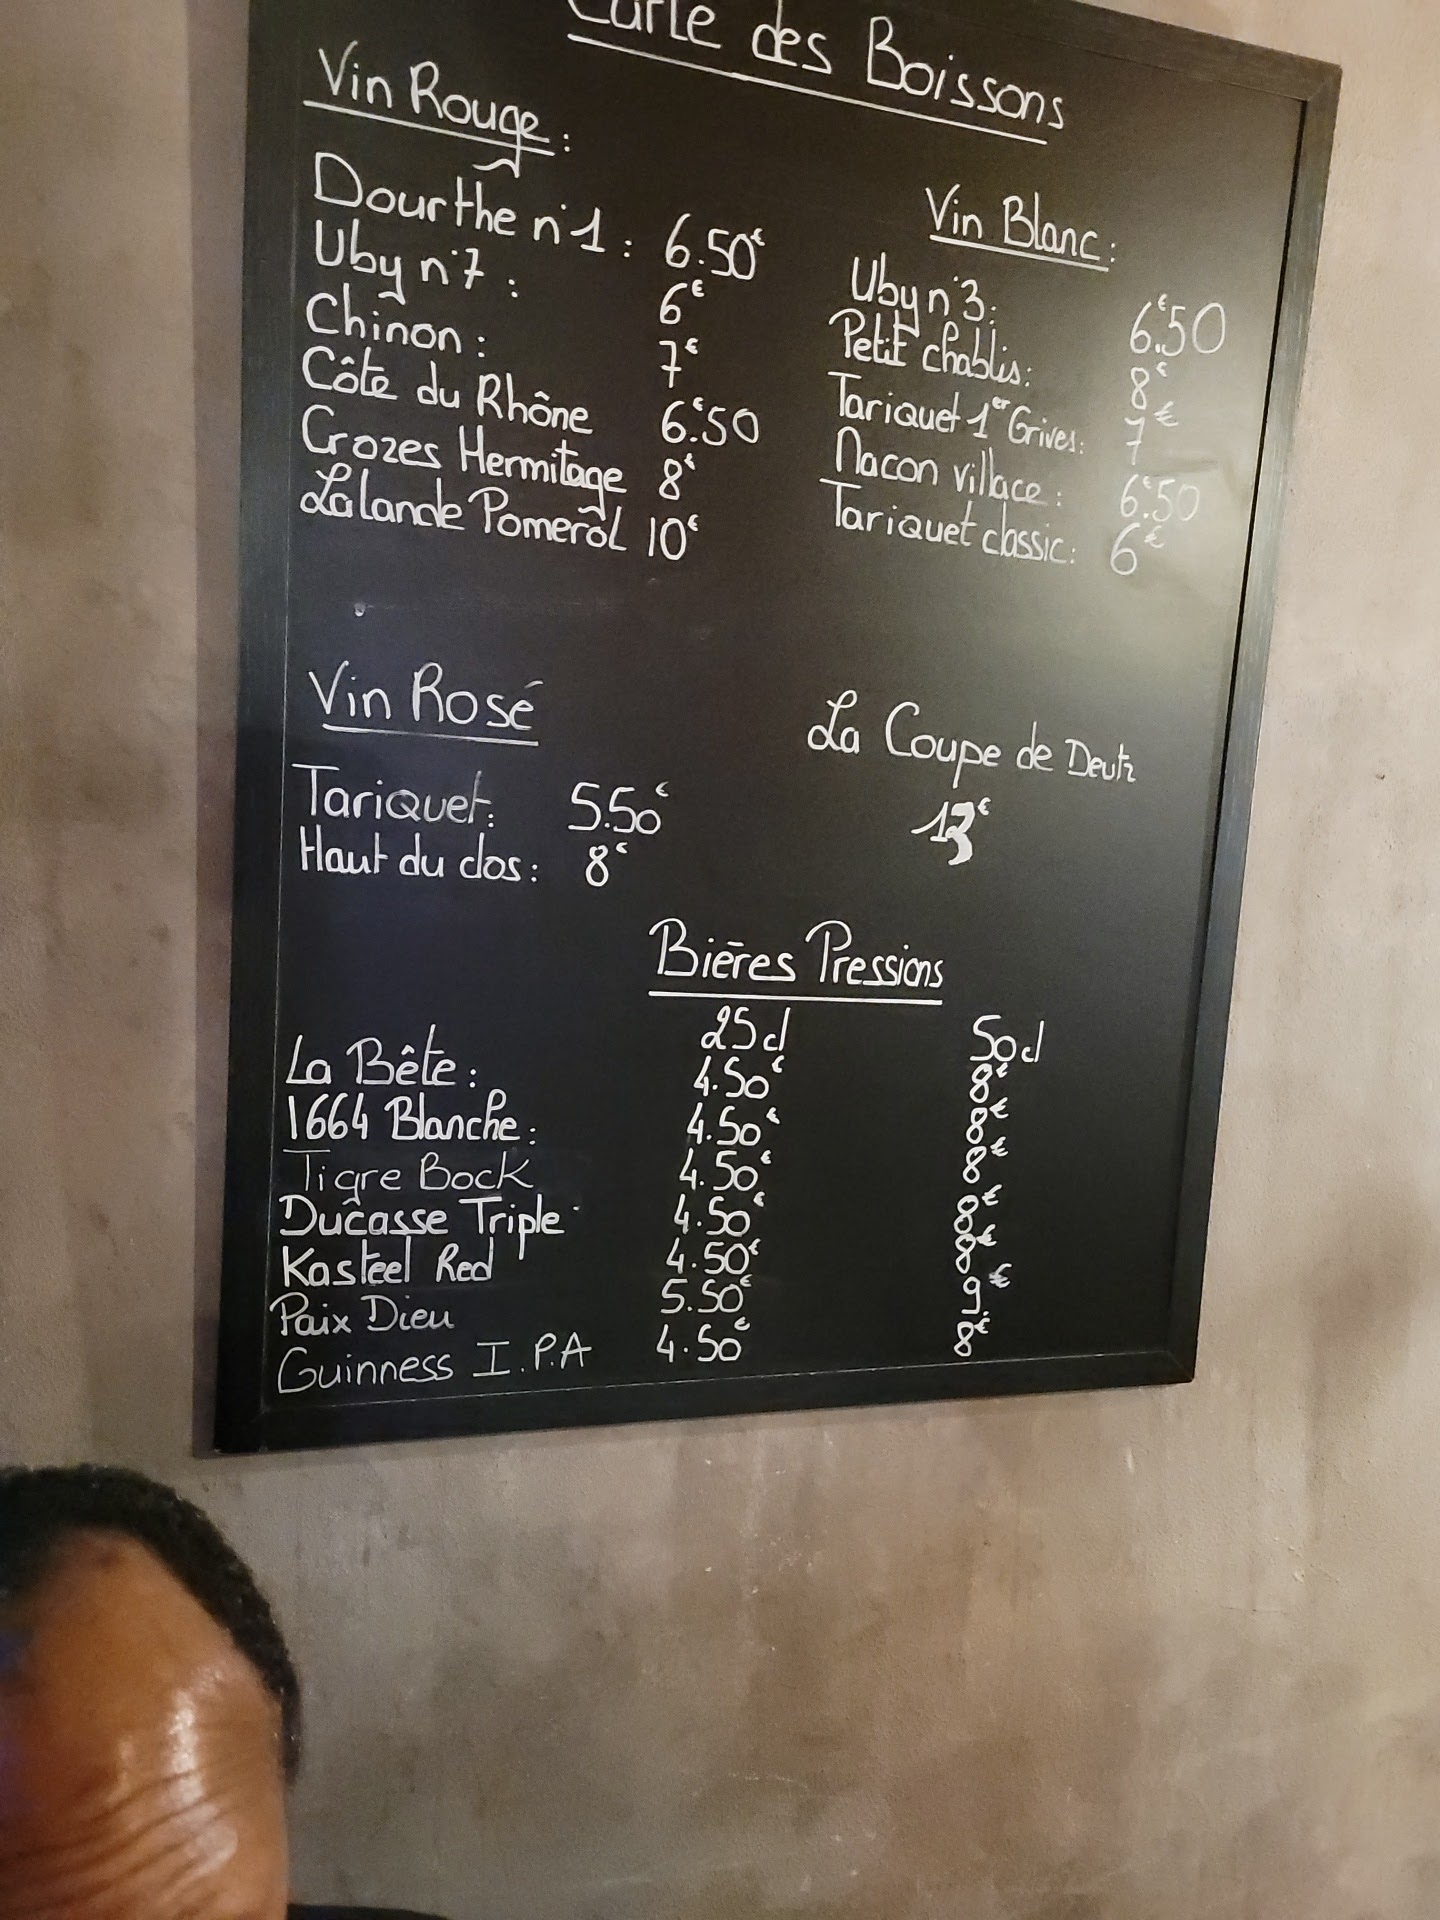 Carte des Boissons
Vin Rouge:
Dourthe n°1: 6.50€
Uby n°7: 6€
Chinon: 7€
Côte du Rhône 6€50
Crozes Hermitage 8€
Lalande Pomerol 10€
Vin Blanc:
Uby n°3: 6€50
Petit chablis: 8€
Tariquet 1er Grives: 7€
Macon villace: 6€50
Tariquet classic: 6€
Vin Rosé
Tariquet: 5.50€
Haut du clos: 8€
La Coupe de Deutz
13€
Bières Pressions
25cl 50cl
La Bête: 4.50€ 8€
1664 Blanche: 4.50€ 8€
Tigre Bock 4.50€ 8€
Ducasse Triple 4.50€ 8€
Kasteel Red 4.50€ 8€
Paix Dieu 5.50€ 9€
Guinness I.P.A 4.50€ 8€